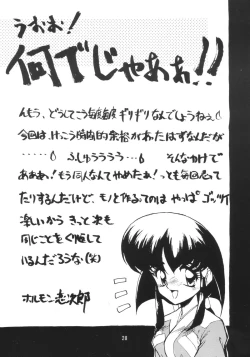 うおお!
何でじゃあぁぁ!!
んもう、どうしてこう毎度毎度ギリギリなんでしょうねぇ。
今回は、けっこう時間的余裕があったはずなんだが
‥‥‥ふしゅううう‥‥。そんなわけで
ああぁ!もう同人なんてやめたぁ!っても毎回思って
たりするんだけど、モノを作るのは やっぱ ゴッツイ
楽しいから きっと 次も
同じことを ぐり返して
いるんだろうな(笑)
ホルモン恋次郎
28